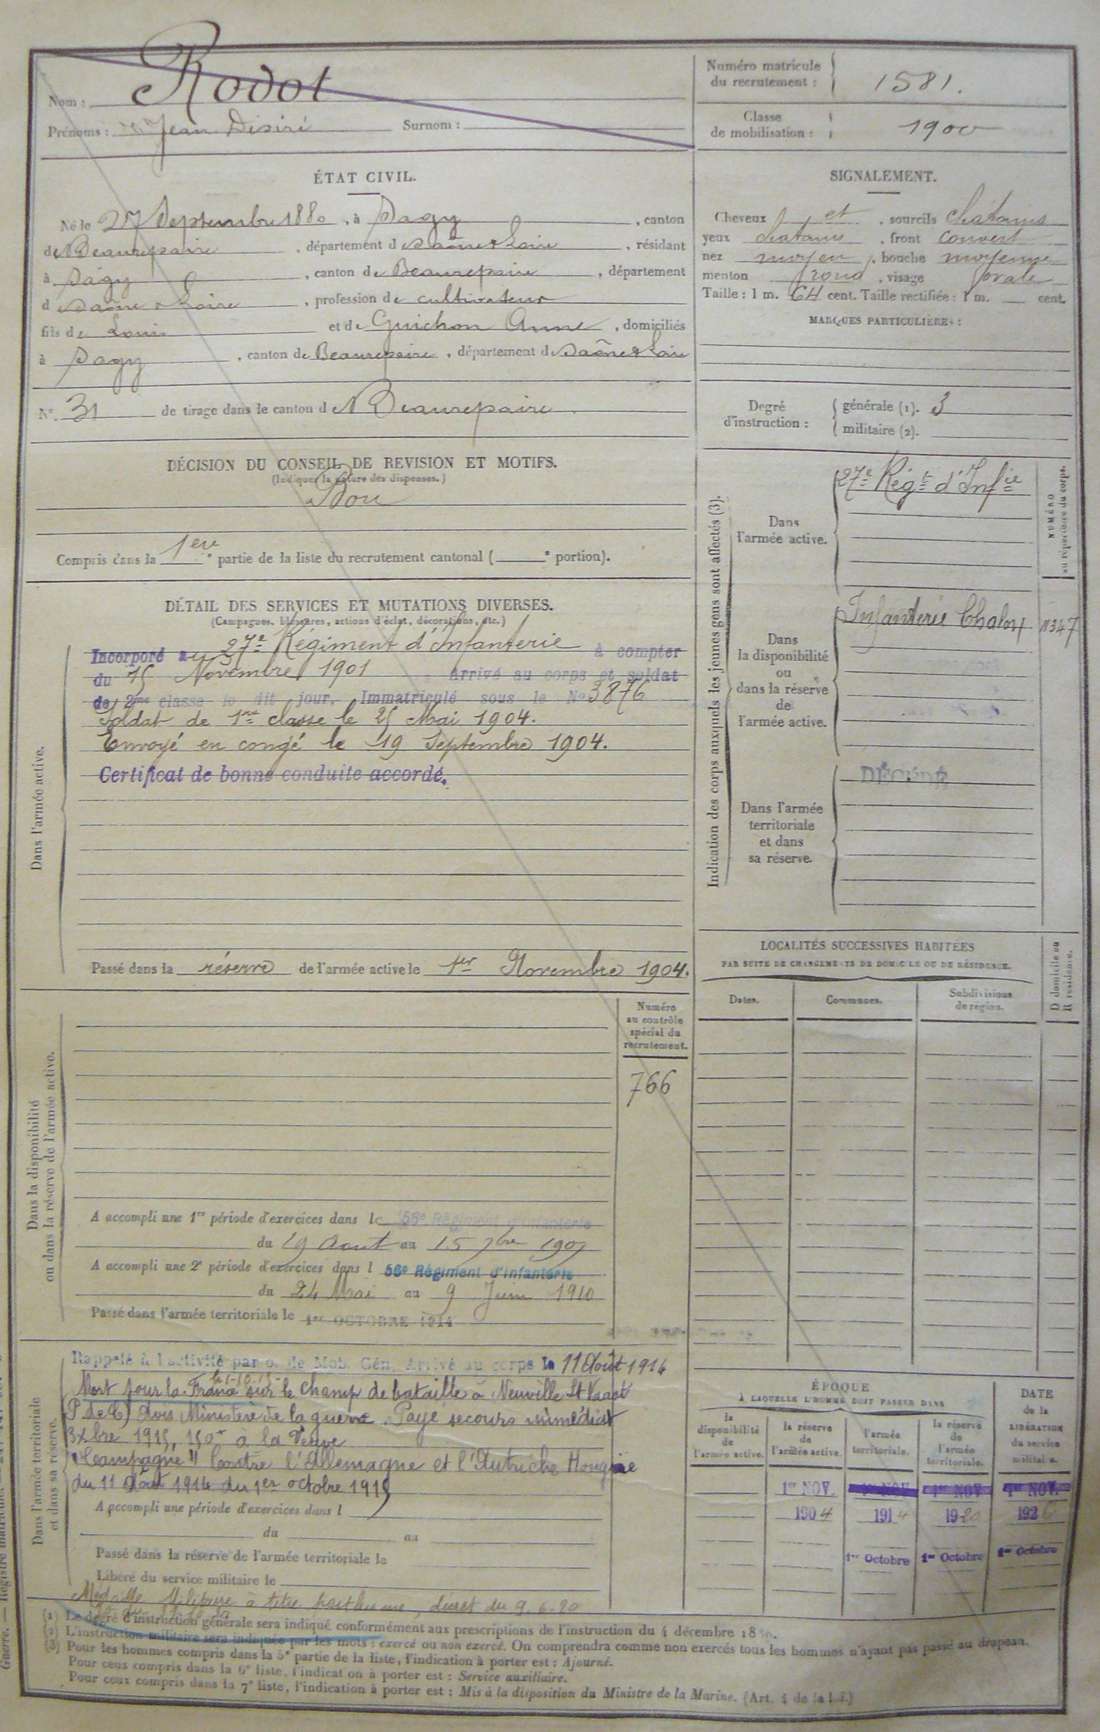 Nom : Rodot
Prénoms : Jean Désiré Surnom :
Numéro matricule du recrutement : 1581.
Classe de mobilisation : 1900
ÉTAT CIVIL.
Né le 27 Septembre 1880, à Sagy, canton
de Beaurepaire, département d Saône & Loire, résidant
à Sagy, canton de Beaurepaire, département
d Saône & Loire, profession de cultivateur
fils de Louis et de Guichon Anne, domiciliés
à Sagy, canton de Beaurepaire, département d Saône & Loire
N° 31 de tirage dans le canton d Beaurepaire.
SIGNALEMENT.
Cheveux et, sourcils chatains
yeux chatains, front couvert
nez moyen, bouche moyenne
menton rond, visage ovale
Taille : 1 m. 64 cent. Taille rectifiée : 1 m. cent.
MARQUES PARTICULIÈRES :
Degré d'instruction : générale (1). 3
militaire (2).
DÉCISION DU CONSEIL DE REVISION ET MOTIFS.
(Indiquer la nature des dispenses.)
Bon
Compris dans la 1ere partie de la liste du recrutement cantonal ( e portion).
DÉTAIL DES SERVICES ET MUTATIONS DIVERSES.
(Campagnes, blessures, actions d'éclat, décorations, etc.)
Dans l'armée active.
Incorporé au 27e Régiment d'Infanterie à compter
du 15 Novembre 1901 Arrivé au corps et soldat
de 2me classe le dit jour. Immatriculé sous le No 3876
Soldat de 1re classe le 25 Mai 1904.
Envoyé en congé le 19 Septembre 1904.
Certificat de bonne conduite accordé.
Passé dans la réserve de l'armée active le 1er Novembre 1904.
Indication des corps auxquels les jeunes gens sont affectés (3).
NUMÉRO au répertoire du corps.
Dans l'armée active.
27e Régt d'Infie
Dans la disponibilité ou dans la réserve de l'armée active.
Infanterie Chalon
347
Dans l'armée territoriale et dans sa réserve.
DÉCÉDÉ
LOCALITÉS SUCCESSIVES HABITÉES
PAR SUITE DE CHANGEMENTS DE DOMICILE OU DE RÉSIDENCE.
Dates. Communes. Subdivisions de région. D domicile ou R résidence.
Dans la disponibilité ou dans la réserve de l'armée active.
Numéro au contrôle spécial du recrutement.
766
A accompli une 1re période d'exercices dans le 56e Régiment d'Infanterie
du 19 Août au 15 7bre 1907
A accompli une 2e période d'exercices dans l 56e Régiment d'Infanterie
du 24 Mai au 9 Juin 1910
Passé dans l'armée territoriale le 1er OCTOBRE 1914
Dans l'armée territoriale et dans sa réserve.
Rappelé à l'activité par o. de Mob. Gén. Arrivé au corps le 11 Août 1914
le 1-10-15
Mort pour la France sur le champ de bataille à Neuville St Vaast
(P de C) Avis Ministère de la guerre. Payé secours immédiat
Xbre 1915, 150f à la Veuve
"Campagne" Contre l'Allemagne et l'Autriche Hongrie
du 11 Août 1914 au 1er octobre 1915
A accompli une période d'exercices dans l
du au
Passé dans la réserve de l'armée territoriale le
Libéré du service militaire le
Médaille Militaire à titre posthume, décret du 9.6.20
ÉPOQUE
À LAQUELLE L'HOMME DOIT PASSER DANS
la disponibilité de l'armée active. la réserve de l'armée active. l'armée territoriale. la réserve de l'armée territoriale. DATE de la LIBÉRATION du service militaire.
1er NOV. 1er NOV. 1er NOV. 1er NOV.
1904 1914 1920 1926
1er Octobre 1er Octobre 1er Octobre
(1) Le degré d'instruction générale sera indiqué conformément aux prescriptions de l'instruction du 4 décembre 18
(2) L'instruction militaire sera indiquée par les mots : exercé ou non exercé. On comprendra comme non exercés tous les hommes n'ayant pas passé au drapeau.
(3) Pour les hommes compris dans la 5e partie de la liste, l'indication à porter est : Ajourné.
Pour ceux compris dans la 6e liste, l'indication à porter est : Service auxiliaire.
Pour ceux compris dans la 7e liste, l'indication à porter est : Mis à la disposition du Ministre de la Marine. (Art. 4 de la loi)